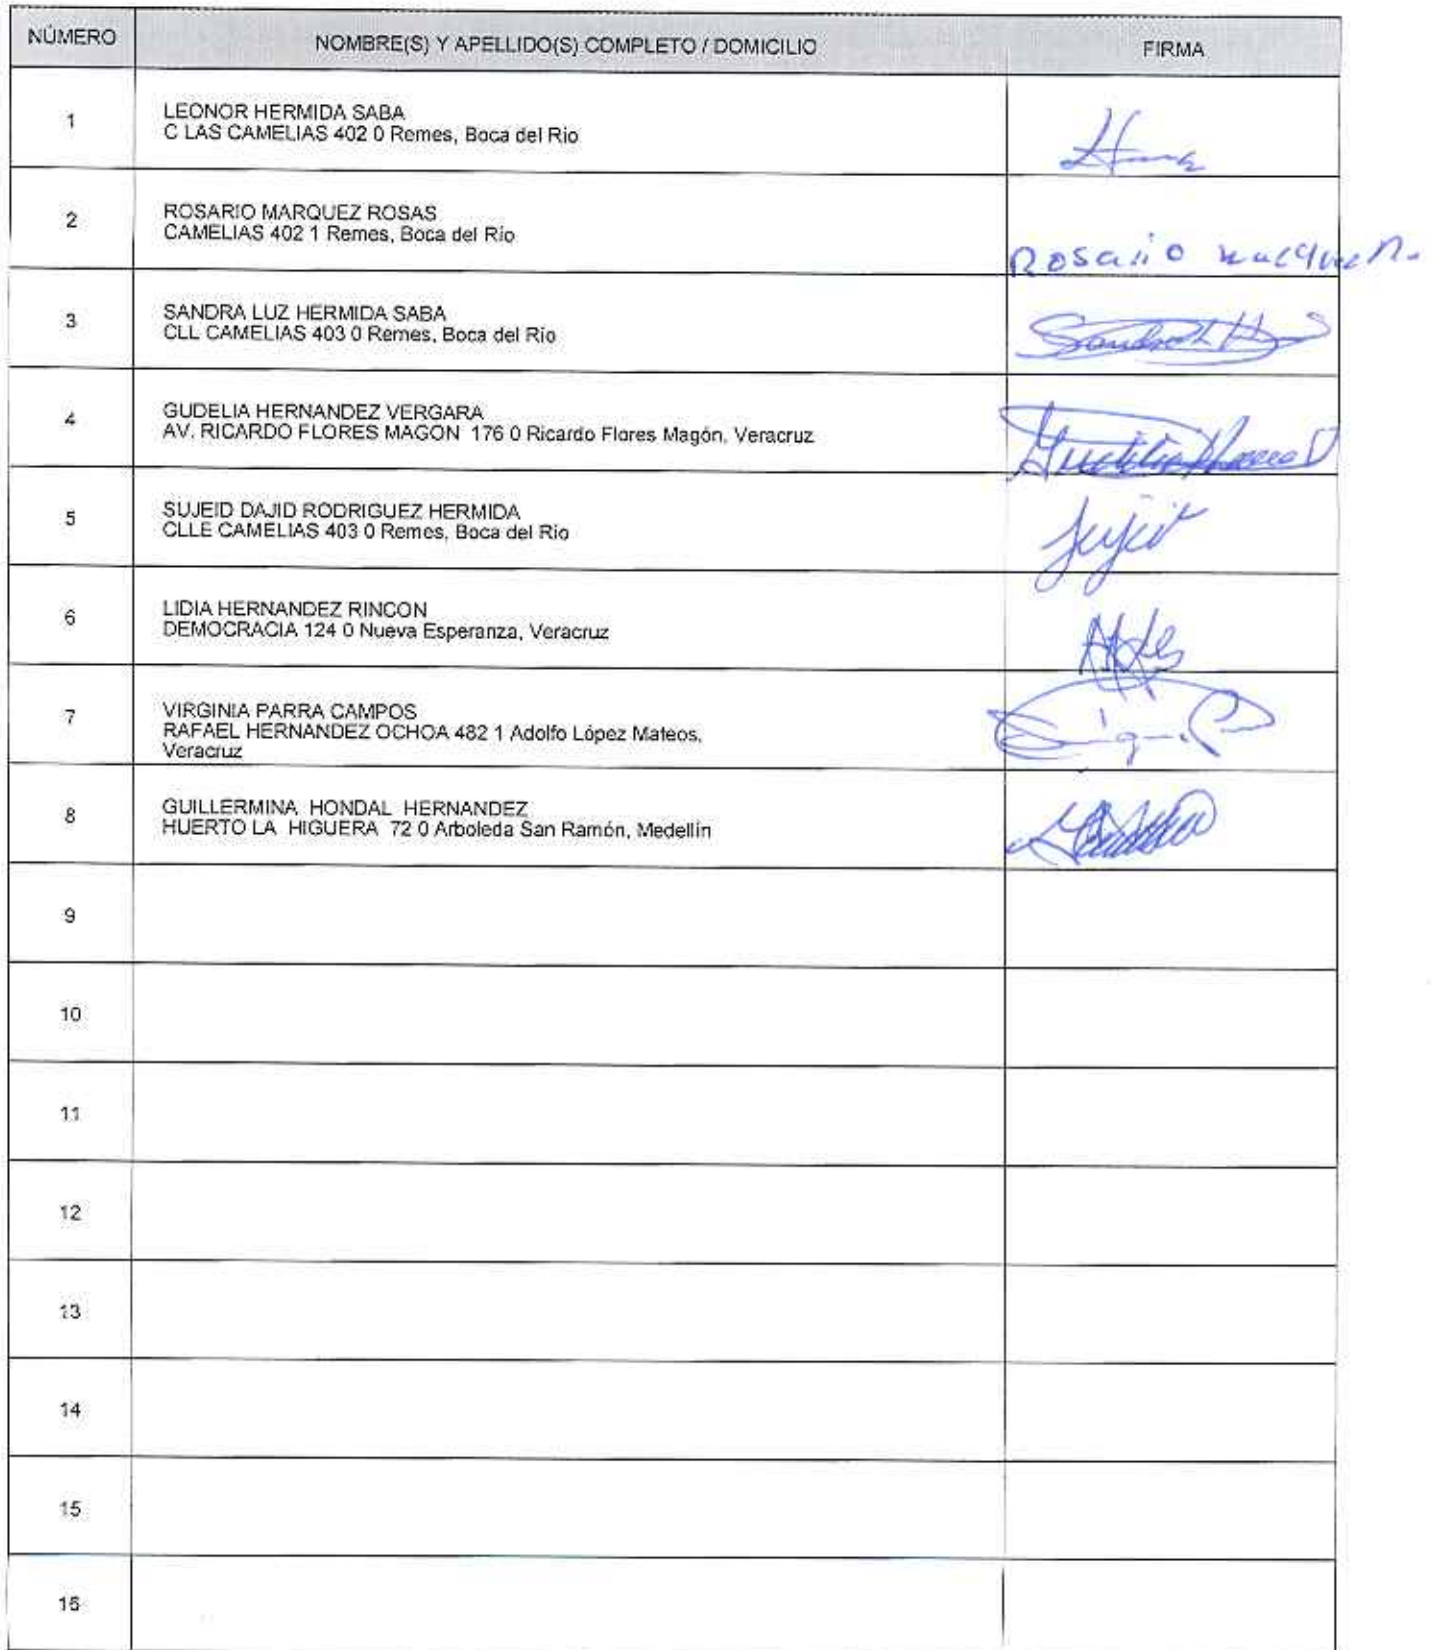 NÚMERO
NOMBRE(S) Y APELLIDO(S) COMPLETO / DOMICILIO
FIRMA
1
LEONOR HERMIDA SABA
C LAS CAMELIAS 402 0 Remes, Boca del Río
2
ROSARIO MARQUEZ ROSAS
CAMELIAS 402 1 Remes, Boca del Río
Rosario
3
SANDRA LUZ HERMIDA SABA
CLL CAMELIAS 403 0 Remes, Boca del Río
4
GUDELIA HERNANDEZ VERGARA
AV. RICARDO FLORES MAGON 176 0 Ricardo Flores Magón, Veracruz
5
SUJEID DAJID RODRIGUEZ HERMIDA
CLLE CAMELIAS 403 0 Remes, Boca del Río
6
LIDIA HERNANDEZ RINCON
DEMOCRACIA 124 0 Nueva Esperanza, Veracruz
7
VIRGINIA PARRA CAMPOS
RAFAEL HERNANDEZ OCHOA 482 1 Adolfo López Mateos,
Veracruz
8
GUILLERMINA HONDAL HERNANDEZ
HUERTO LA HIGUERA 72 0 Arboleda San Ramón, Medellín
9
10
11
12
13
14
15
16